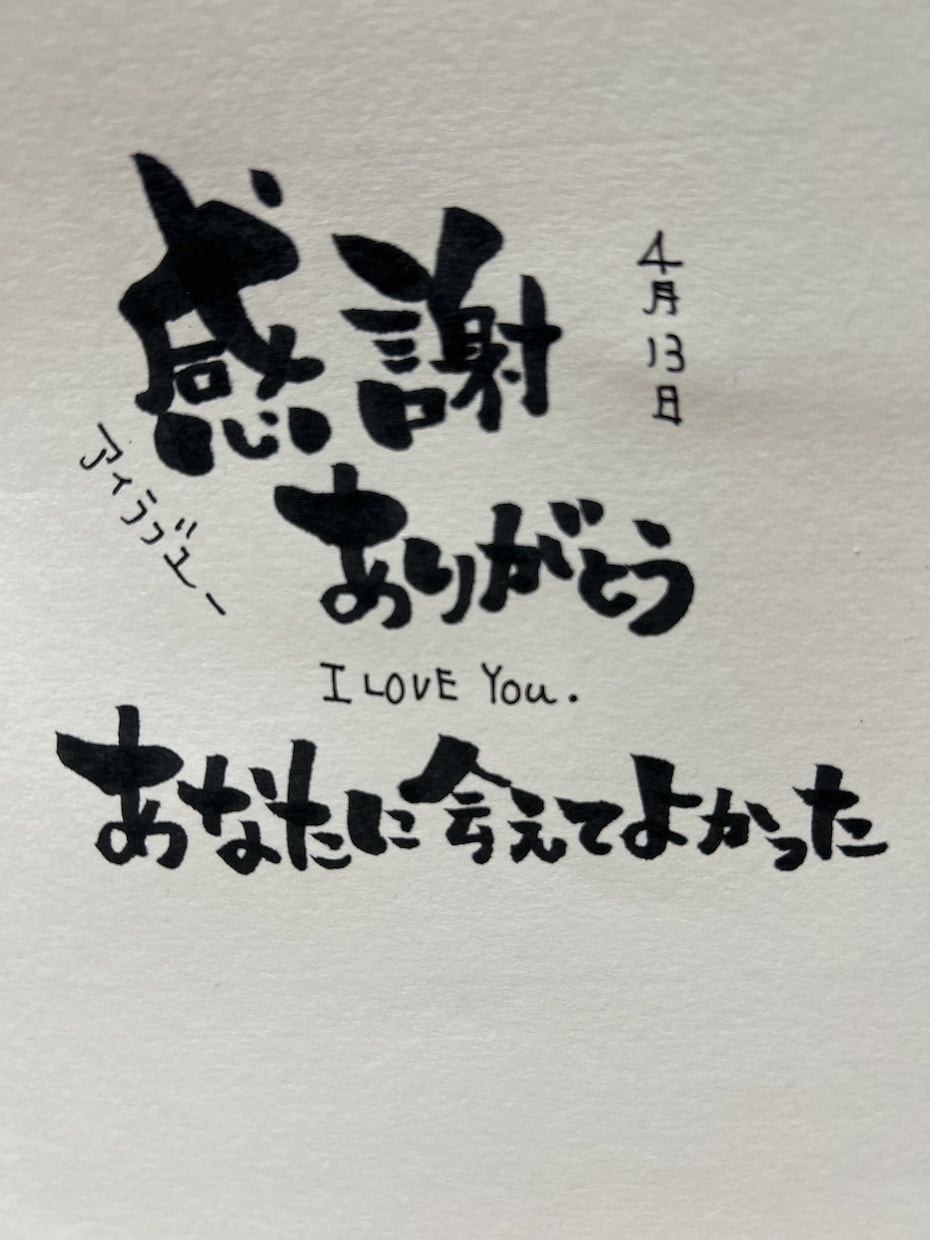 感謝
4月13日
アイラブユー
ありがとう
I LOVE You.
あなたに会えてよかった